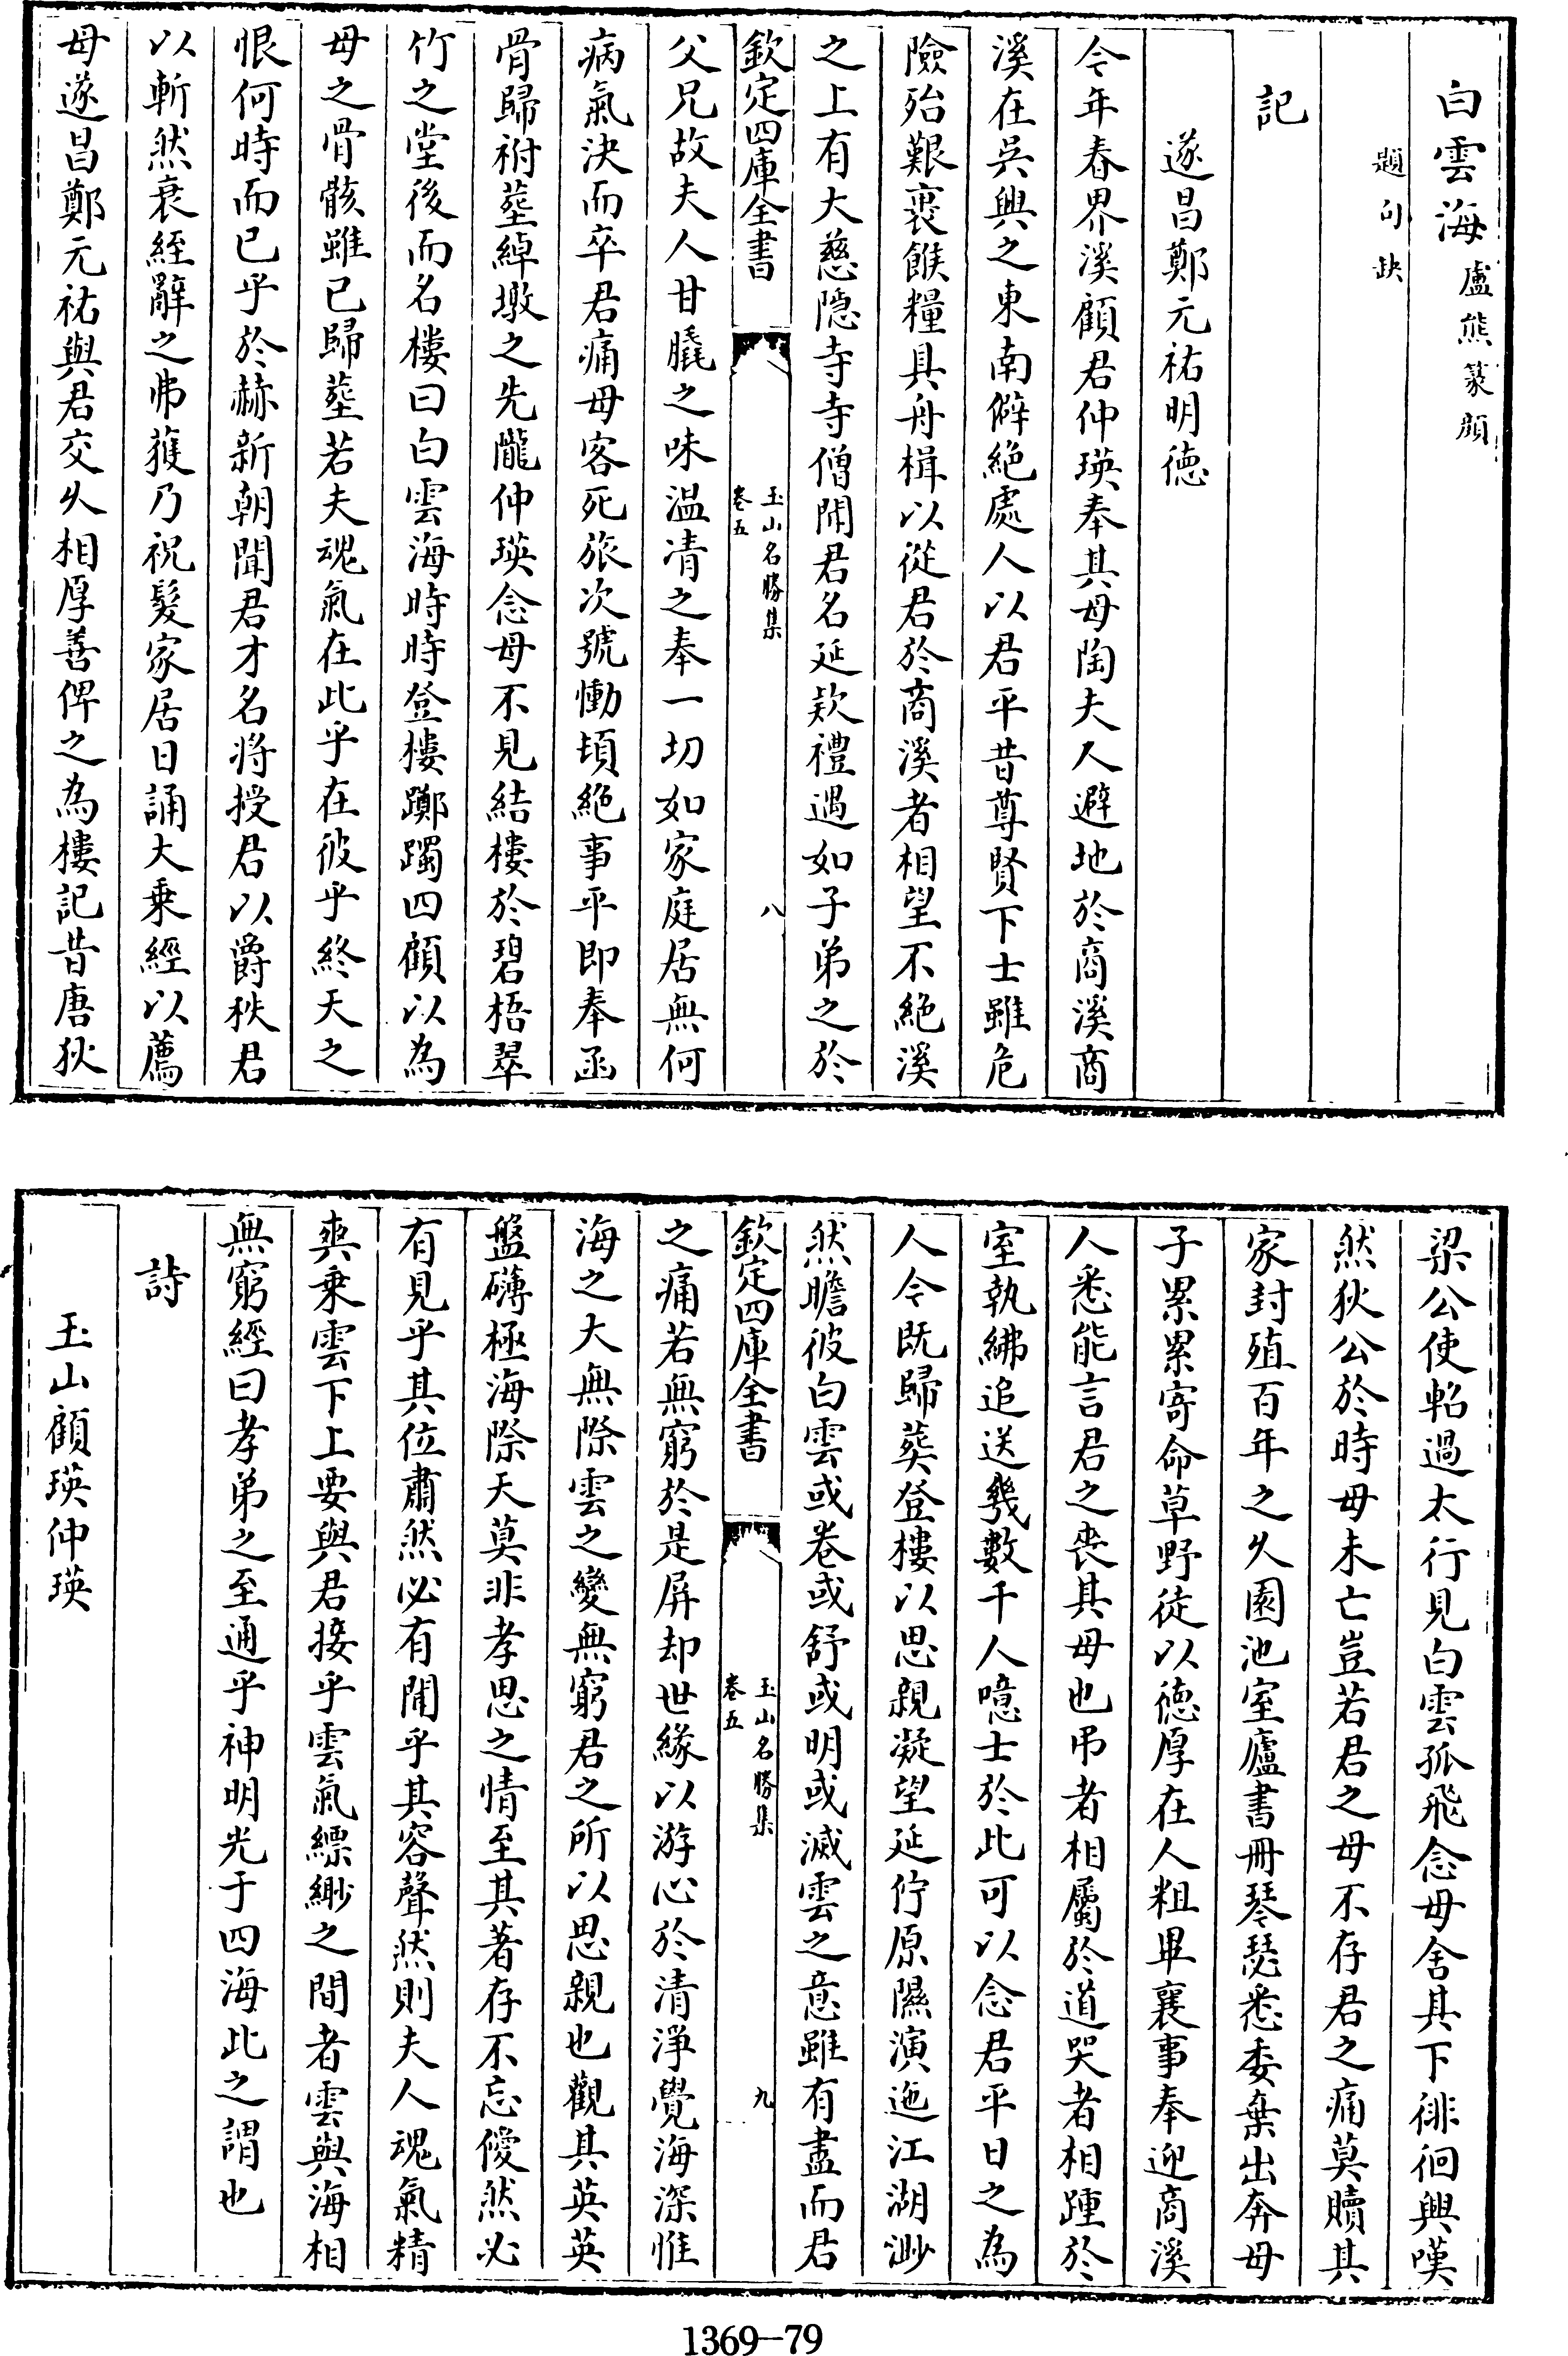 白雲海盧熊篆顔
題句缺
記
遂昌鄭元祐明徳
今年春界溪顧君仲瑛奉其母陶夫人避地於商溪商
溪在吳興之東南僻絶處人以君平昔尊賢下士雖危
險殆艱裹餱糧具舟楫以從君於商溪者相望不絶溪
之上有大慈隠寺寺僧聞君名延欵禮遇如子弟之於
欽定四庫全書
玉山名勝集
卷五
八
父兄故夫人甘脆之味温凊之奉一切如家庭居無何
病氣決而卒君痛母客死旅次號慟頓絶事平即奉函
骨歸祔塟綽墩之先隴仲瑛念母不見結樓於碧梧翠
竹之堂後而名樓曰白雲海時時登樓躑躅四顧以為
母之骨骸雖已歸塟若夫魂氣在此乎在彼乎終天之
恨何時而已乎於赫新朝聞君才名將授君以爵秩君
以斬然衰絰辭之弗獲乃祝髮家居日誦大乗經以薦
母遂昌鄭元祐與君交乆相厚善俾之為樓記昔唐狄
梁公使軺過太行見白雲孤飛念母舍其下徘徊興嘆
然狄公於時母未亡豈若君之母不存君之痛莫贖其
家封殖百年之乆園池室廬書冊琴瑟悉委棄出奔母
子累累寄命草野徒以徳厚在人粗畢襄事奉迎商溪
人悉能言君之喪其母也弔者相屬於道哭者相踵於
室執紼追送幾數千人噫士於此可以念君平日之為
人今既歸葬登樓以思親凝望延佇原隰演迤江湖渺
然瞻彼白雲或卷或舒或明或滅雲之意雖有盡而君
欽定四庫全書
玉山名勝集
卷五
九
之痛若無窮於是屏却世緣以游心於清淨覺海深惟
海之大無際雲之變無窮君之所以思親也觀其英英
盤礴極海際天莫非孝思之情至其著存不忘僾然必
有見乎其位肅然必有聞乎其容聲然則夫人魂氣精
爽乗雲下上要與君接乎雲氣縹緲之間者雲與海相
無窮經曰孝弟之至通乎神明光于四海此之謂也
詩
玉山顧瑛仲瑛
1369-79